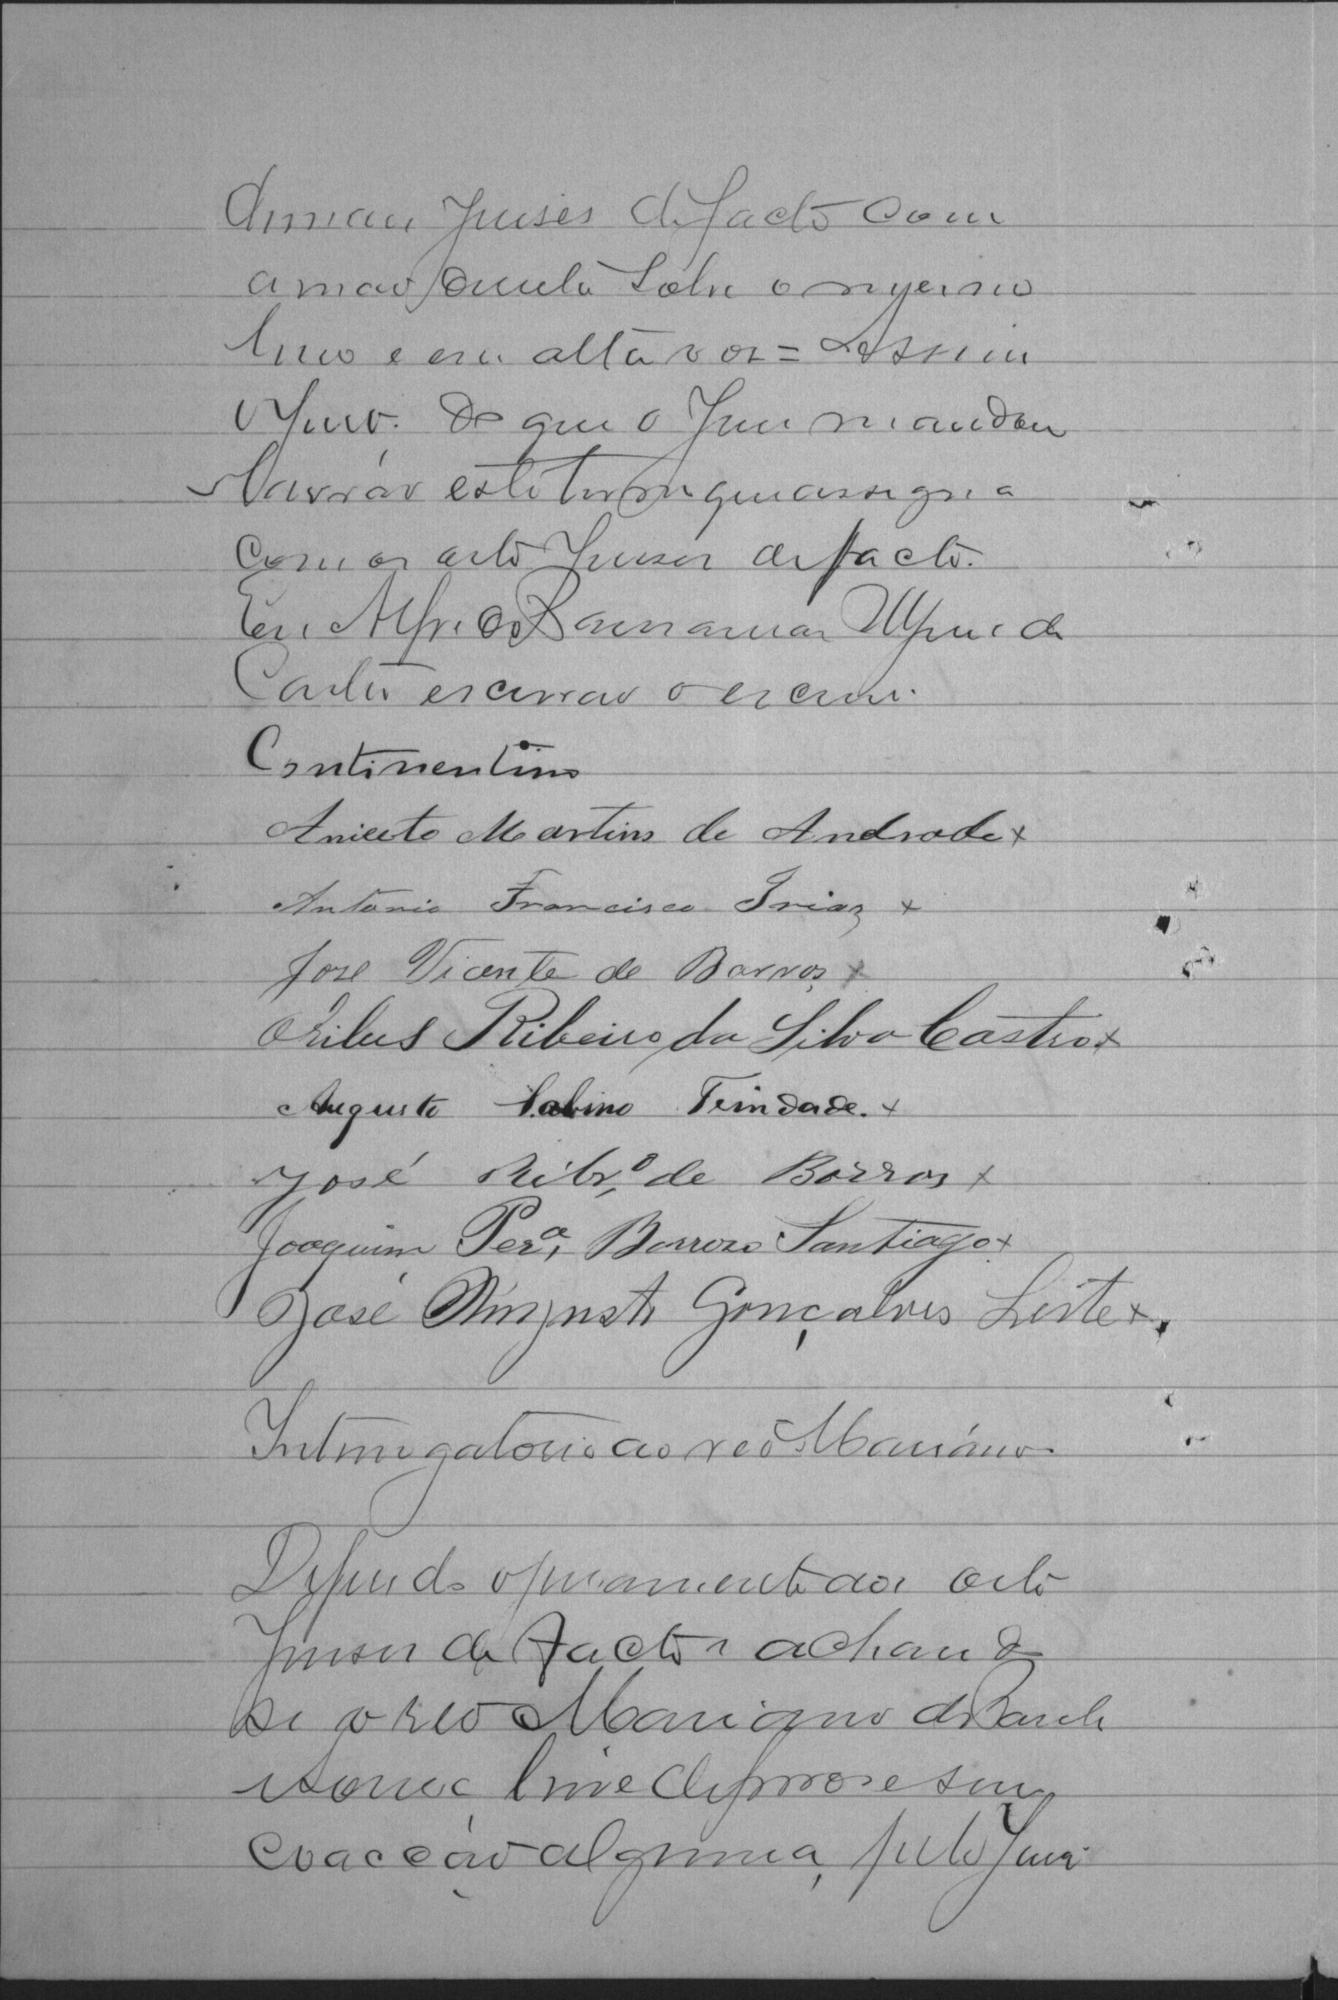 demais juises de facto com
a mao direita sobre o mesmo
livro e em alta vos = Assim
o juro. Do que o Juis mandou
lavrar este termo que assigna
com os oito Juises de facto.
Eu Alfredo
Costa escrivão o escrevi.
Continentino
Aniceto Martins de Andrade x
Antonio Francisco Frias x
José Vicente de Barros x
Ribeiro da Silva Castro x
Augusto Sabino Trindade. x
José Ribr.º de Barros x
Joaquim Per.ª Barroso Santiago x
José Augusto Gonçalves Leite x
Interrogatorio ao reo Mariano
Deferido o juramento aos oito
Juises de Facto e achando
se o reo Mariano de
livre de ferros e sem
coacção alguma, pelo Juis